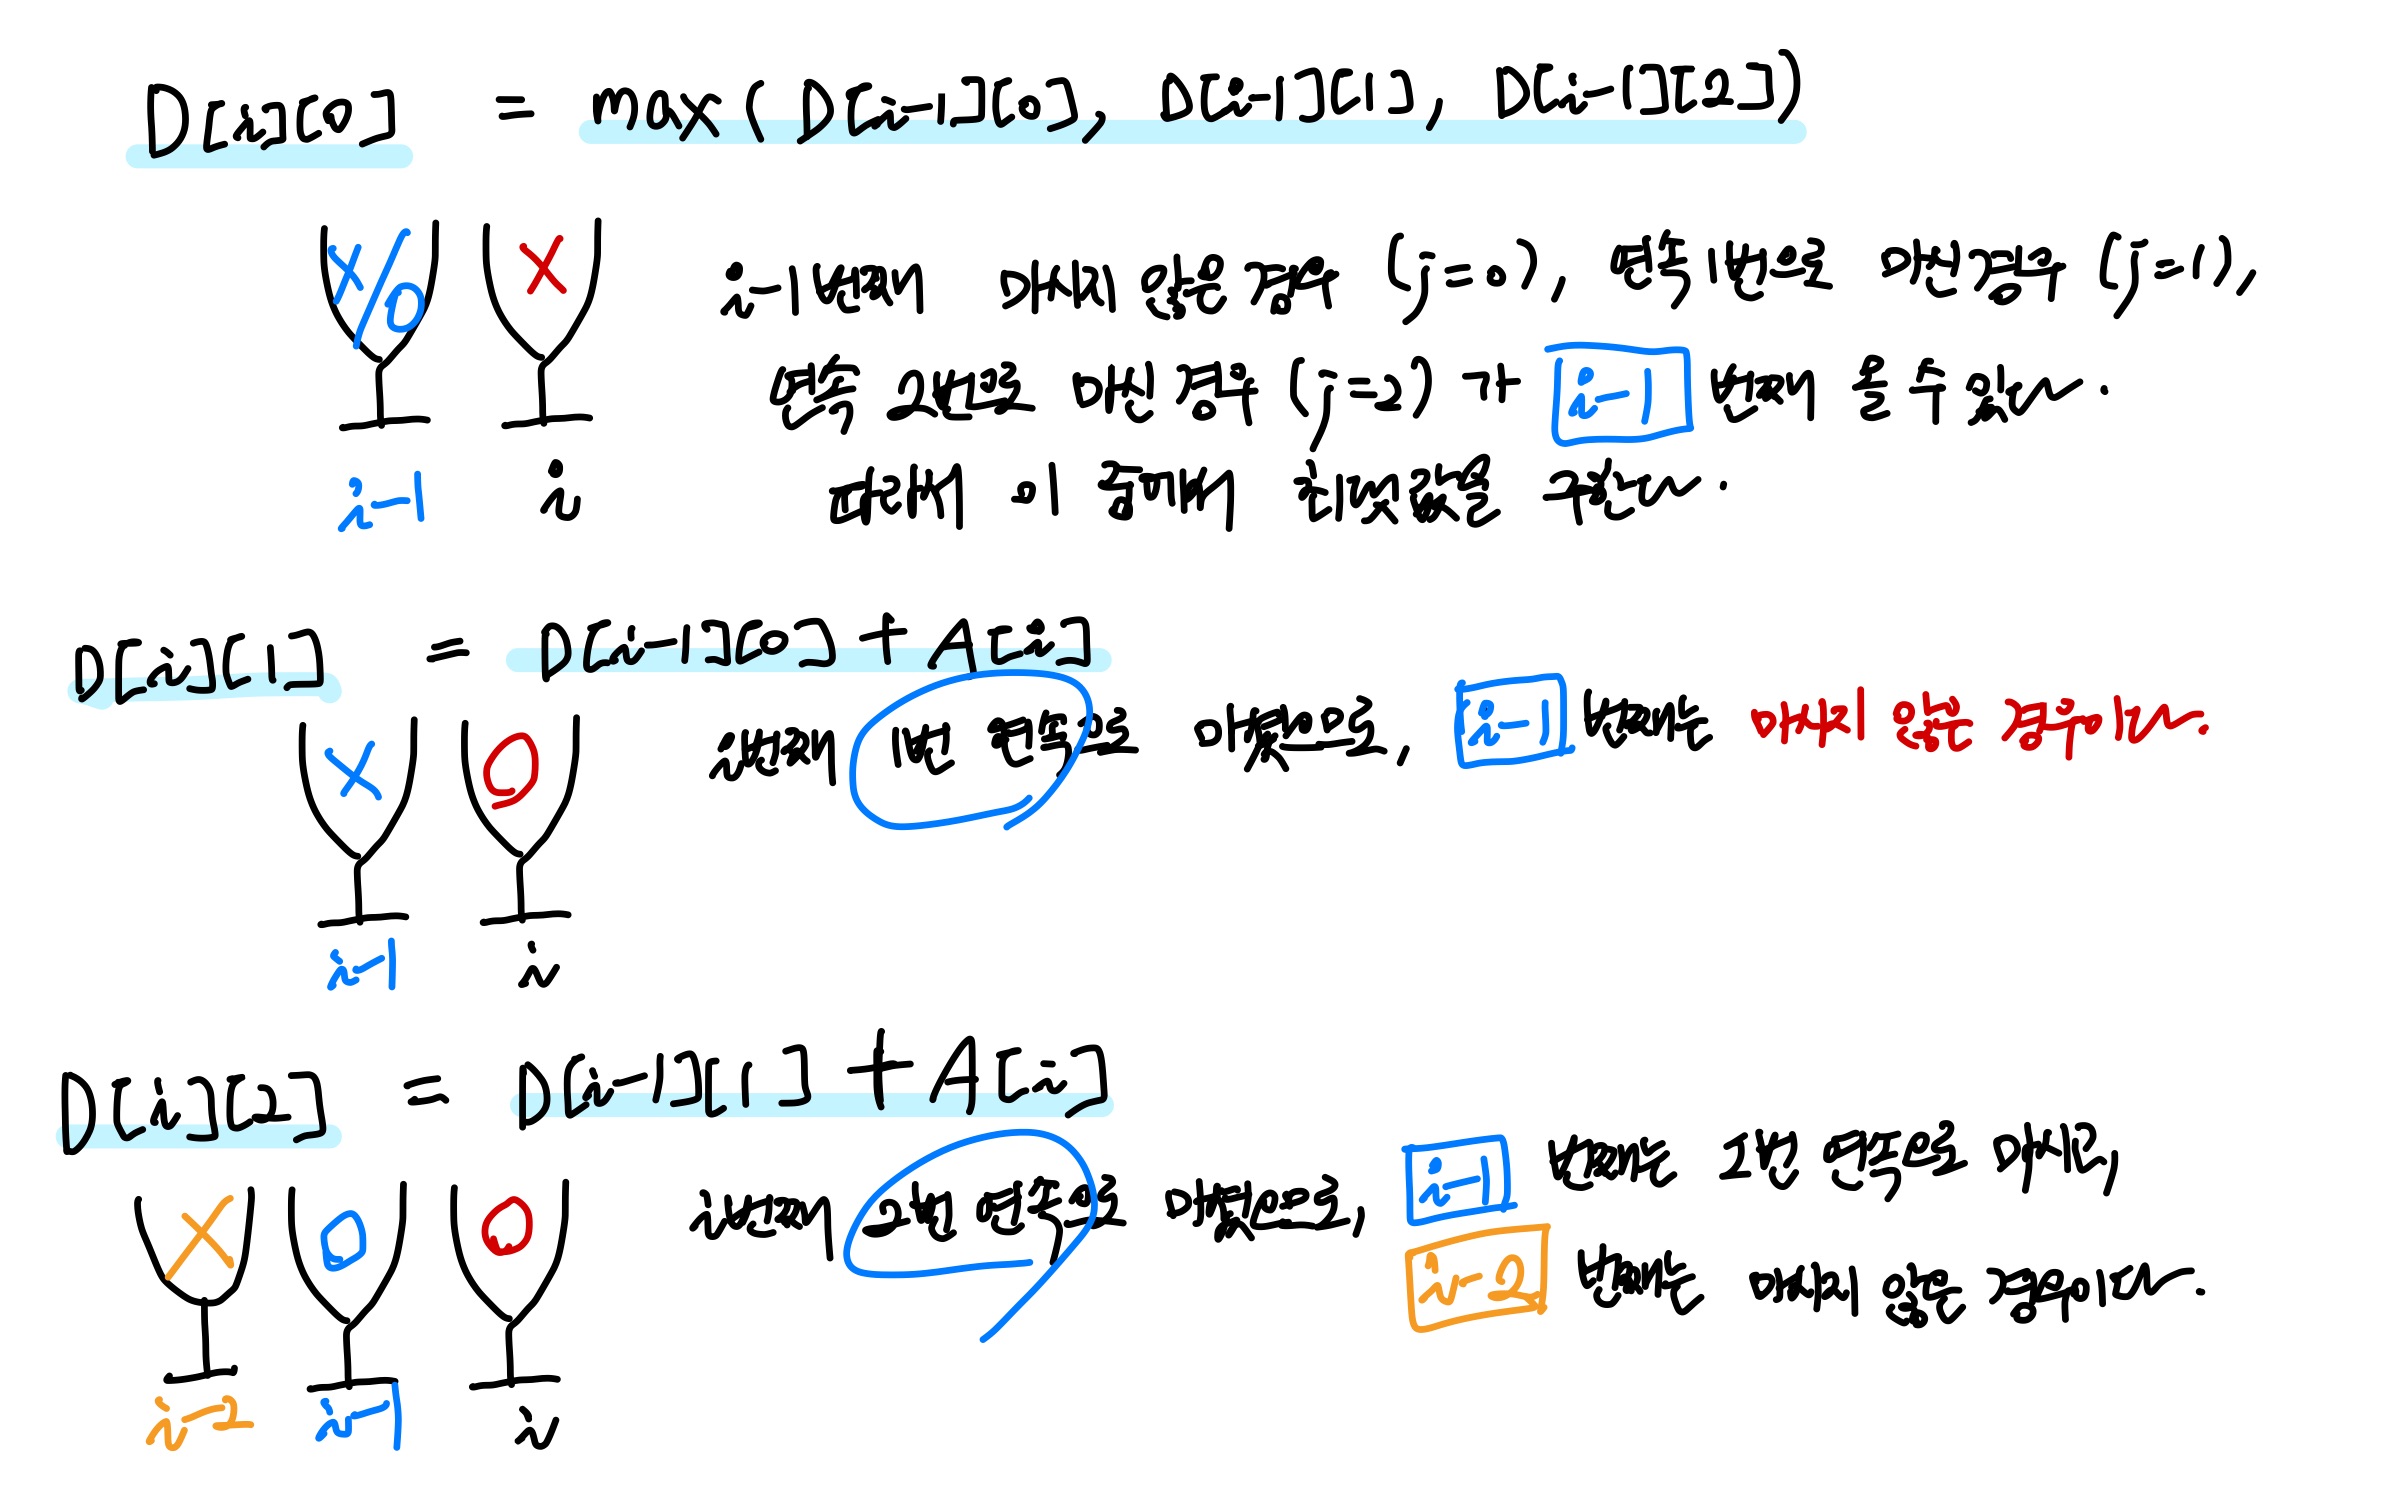 D[i][0] = max(D[i-1][0], D[i-1][1], D[i-1][2])
X/O X
i-1번째에 마시지 않은 경우 (j=0), 연속 1번으로 마신경우 (j=1),
연속 2번으로 마신 경우 (j=2)가 i-1 번째에 올 수 있다.
i-1 i
따라서 이 중에서 최댓값을 구한다.
D[i][1] = D[i-1][0] + A[i]
X O
i번째에 1번 연속으로 마셨으므로, i-1 번째에는 마시지 않은 경우이다.
i-1 i
D[i][2] = D[i-1][1] + A[i]
X O O
i번째에 2번 연속으로 마셨으므로, i-1 번째에는 1번 연속으로 마시고,
i-2 번째에는 마시지 않은 경우이다.
i-2 i-1 i